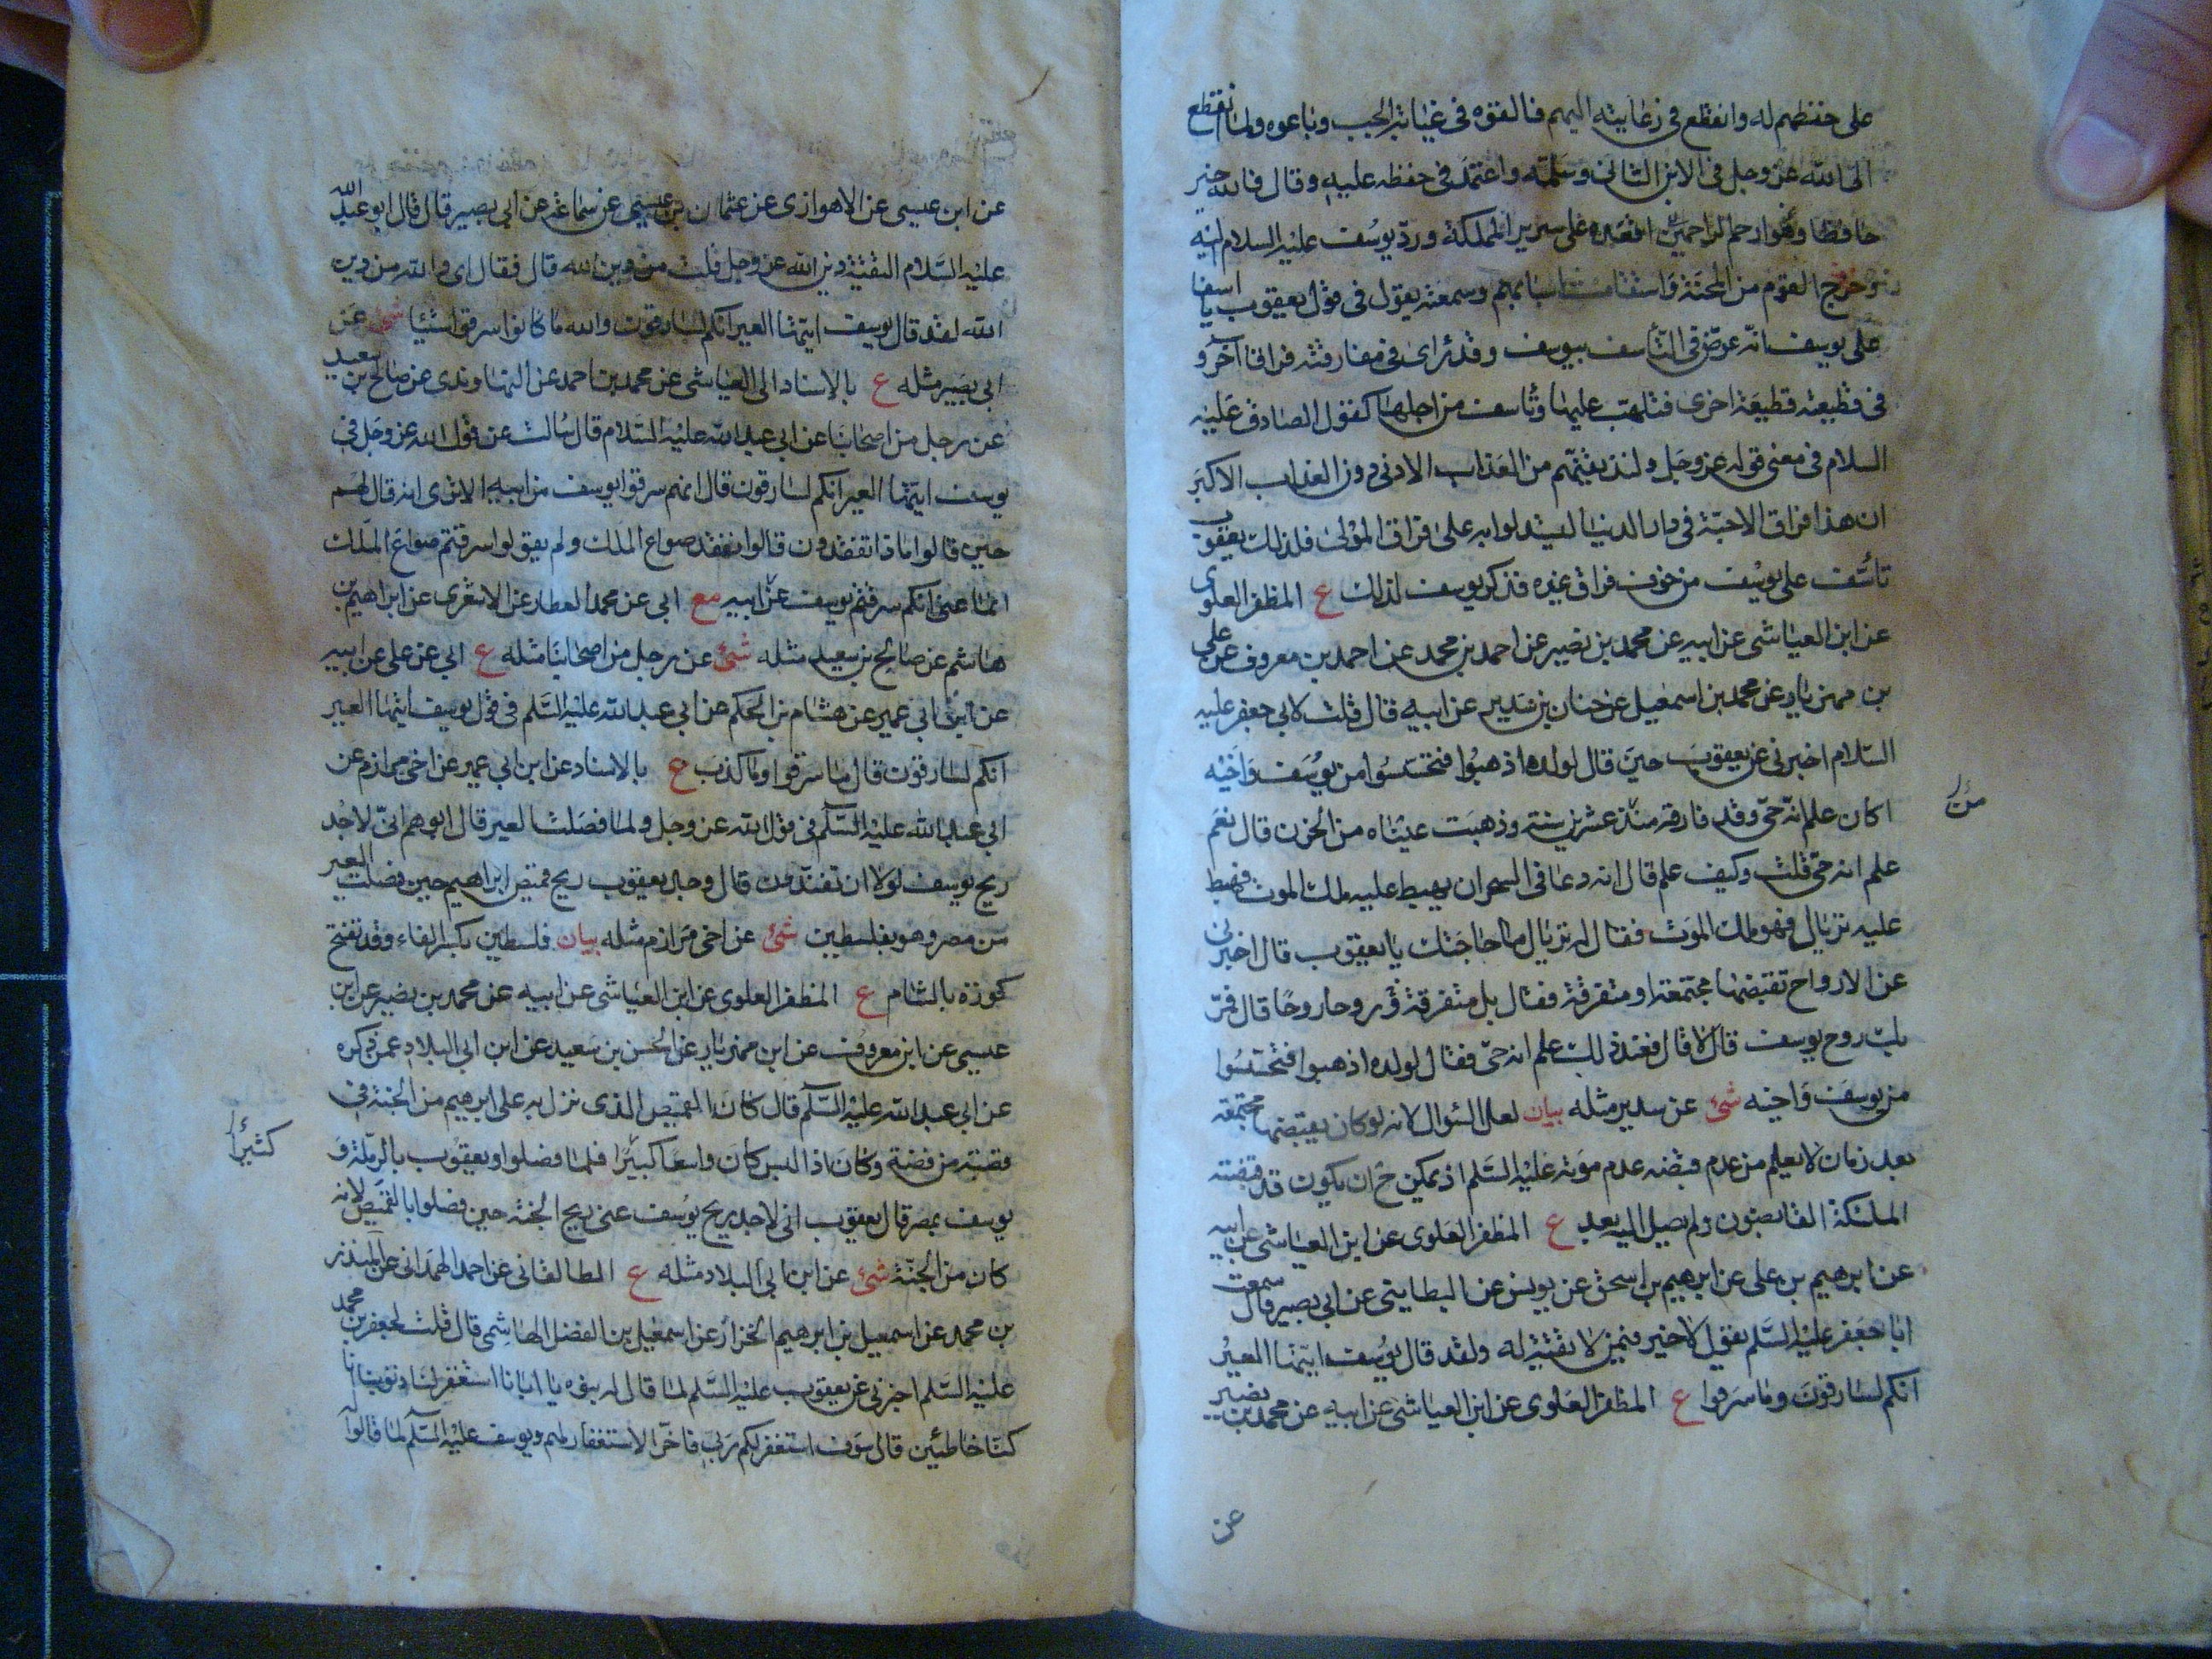 على حفظهم له وانقطع في رعايته اليهم فالقوه في غيابة الجب وباعوه ولما انقطع
الى الله عز وجل في الابن الثاني وسلمه واعتمد في حفظه عليه وقال فالله خير
حافظا وهو ارحم الراحمين اقعده على سرير المملكة ورد يوسف عليه السلام اليه
وخرج القوم من المحنة واستقامت اسبابهم وسمعته يقول في قول يعقوب يا اسفا
على يوسف انه عرض في التأسف بيوسف وقد رأى في مفارقته فراقا آخر و
في قطيعته قطيعة اخرى فتلهف عليها وتأسف من اجلها كقول الصادق عليه
السلام في معنى قوله عز وجل ولنذيقنهم من العذاب الادنى دون العذاب الاكبر
ان هذا فراق الاحبة في دار الدنيا ليستدلوا به على فراق المولى فلذلك يعقوب
تأسف على يوسف من خوف فراق غيره فذكر يوسف لذلك ع المظفر العلوى
عن ابن العياشى عن ابيه عن محمد بن نصير عن احمد بن محمد عن احمد بن معروف عن على
بن مهزيار عن محمد بن اسمعيل عن حنان بن سدير عن ابيه قال قلت لابى جعفر عليه
السلام اخبرنى عن يعقوب حين قال لولده اذهبوا فتحسسوا من يوسف واخيه
اكان علم انه حى وقد فارقه منذ عشرين سنة وذهبت عيناه من الحزن قال نعم
من
علم انه حى قلت وكيف علم قال انه دعا في السحر ان يهبط عليه ملك الموت فهبط
عليه تريال فهو ملك الموت فقال له تريال ما حاجتك يا يعقوب قال اخبرنى
عن الارواح تقبضها مجتمعة او متفرقة فقال بل متفرقة روحا روحا قال فمر
بك روح يوسف قال لا قال فعند ذلك علم انه حى فقال لولده اذهبوا فتحسسوا
من يوسف واخيه شى عن سدير مثله بيان لعل السؤال لانه لو كان يقبضها مجتمعة
بعد زمان لا يعلم من عدم قبضه عدم موته عليه السلم اذ يمكن ح ان يكون قد قبضته
الملئكة القابضون ولم يصل اليه بعد ع المظفر العلوى عن ابن العياشى عن ابيه
عن ابرهيم بن على عن ابرهيم بن اسحق عن يونس عن البطاينى عن ابى بصير قال سمعت
ابا جعفر عليه السلم يقول لا خير فيمن لا تقية له ولقد قال يوسف ايتها العير
انكم لسارقون وما سرقوا ع المظفر العلوى عن ابن العياشى عن ابيه عن محمد بن نصير
عن
عن ابن عيسى عن الاهوازى عن عثمان بن عيسى عن سماعة عن ابى بصير قال قال ابو عبد الله
عليه السلام التقية دين الله عز وجل قلت من دين الله قال فقال اى والله من دين
الله لقد قال يوسف ايتها العير انكم لسارقون والله ما كانوا سرقوا شيئا شى عن
ابى بصير مثله ع بالاسناد الى العياشى عن محمد بن احمد عن النهاوندى عن صالح بن سعيد
عن رجل من اصحابنا عن ابى عبد الله عليه السلام قال سالت عن قول الله عز وجل في
يوسف ايتها العير انكم لسارقون قال انهم سرقوا يوسف من ابيه الا ترى انه قال لهم
حين قالوا ماذا تفقدون قالوا نفقد صواع الملك ولم يقولوا سرقتم صواع الملك
انما عنى انكم سرقتم يوسف عن ابيه مع ابى عن محمد العطار عن الاشعرى عن ابراهيم بن
هاشم عن صالح بن سعيد مثله شى عن رجل من اصحابنا مثله ع ابى عن على عن ابيه
عن ابن ابى عمير عن هشام بن الحكم عن ابى عبد الله عليه السلم في قول يوسف ايتها العير
انكم لسارقون قال ما سرقوا وما كذب ع بالاسناد عن ابن ابى عمير عن اخى مرازم عن
ابى عبد الله عليه السلم في قول الله عز وجل ولما فصلت العير قال ابوهم انى لاجد
ريح يوسف لولا ان تفندون قال وجد يعقوب ريح قميص ابراهيم حين فصلت العير
من مصر وهو بفلسطين شى عن اخى مرازم مثله بيان فلسطين بكسر الفاء وقد تفتح
كورة بالشام ع المظفر العلوى عن ابن العياشى عن ابيه عن محمد بن نصير عن ابن
عيسى عن ابن معروف عن ابن مهزيار عن الحسن بن سعيد عن ابن ابى البلاد عمن ذكره
عن ابى عبد الله عليه السلم قال كان القميص الذى نزل به على ابرهيم من الجنة في
قصبة من فضة وكان اذا لبس كان واسعا كبيرا فلما فصلوا ويعقوب بالرملة و
كثيرا
يوسف بمصر قال يعقوب انى لاجد ريح يوسف عنى ريح الجنة حين فصلوا بالقميص لانه
كان من الجنة شى عن ابن ابى البلاد مثله ع الطالقانى عن احمد الهمدانى عن المنذر
بن محمد عن اسمعيل بن ابرهيم الخزاز عن اسمعيل بن الفضل الهاشمى قال قلت لجعفر بن محمد
عليه السلم اخبرنى عن يعقوب عليه السلم لما قال له بنوه يا ابانا استغفر لنا ذنوبنا انا
كنا خاطئين قال سوف استغفر لكم ربى فاخر الاستغفار لهم ويوسف عليه السلم لما قالوا له